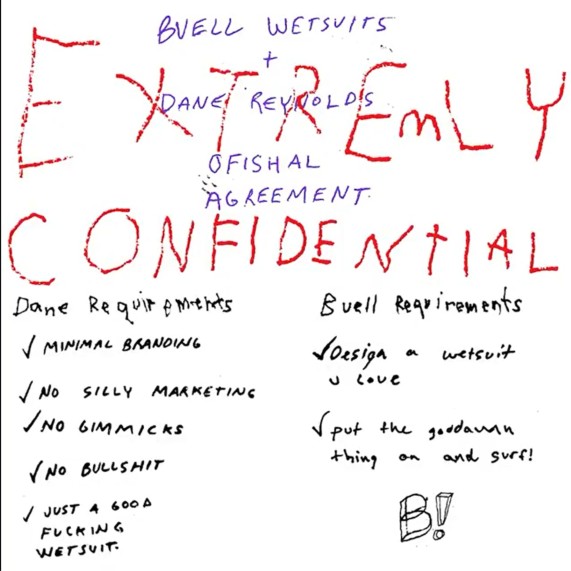 BUELL WETSUITS
+
DANE REYNOLDS
OFISHAL
AGREEMENT.
EXTREmLY
CONFIDENtIAL
Dane Requirements
✓ MINIMAL BRANDING
✓ NO SILLY MARKETING
✓ NO GIMMICKS
✓ NO BULLSHIT
✓ JUST A GOOD
FUCKING
WETSUIT.
Buell Requirements
✓ Design a wetsuit
u Love
✓ put the goddamn
thing on and surf!
B!